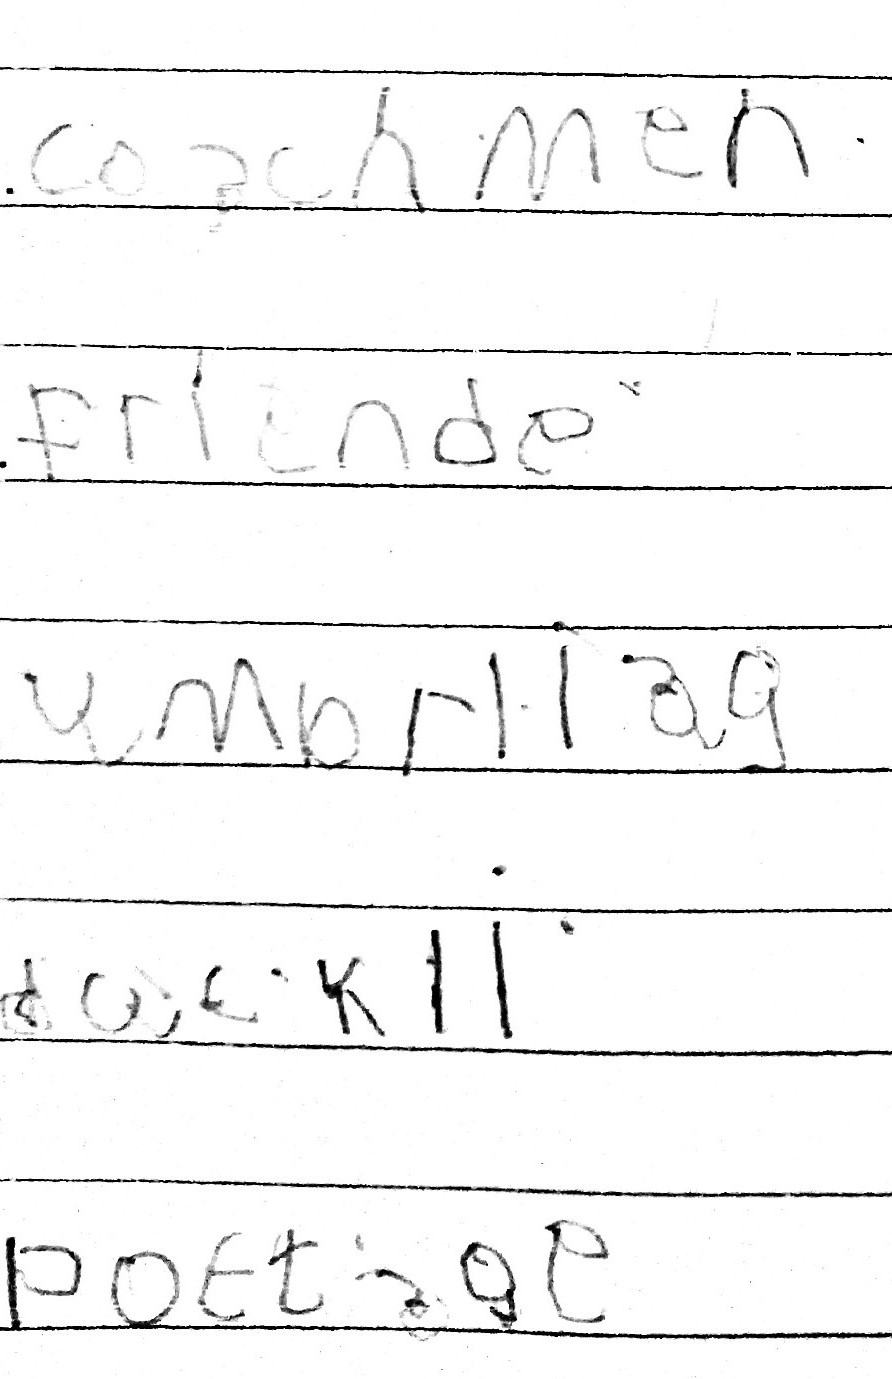 coachmen
Friende
umbrllag
duckll
pottage